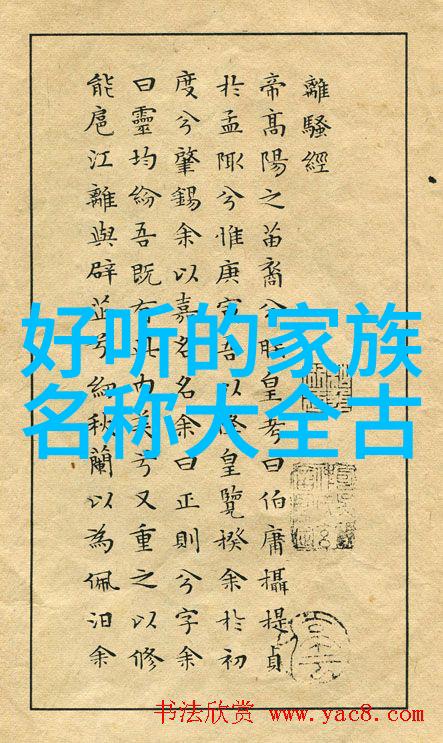 離騷經
帝高陽之苗裔兮朕皇考曰伯庸攝提貞
於孟陬兮惟庚寅吾以降皇覽揆余於初
度兮肇錫余以嘉名名余曰正則兮字余
曰靈均紛吾既有此內美兮又重之以修
能扈江離與辟芷兮紉秋蘭以為佩汨余
好听的家族
名称大全古
书法欣赏 www.yac8.com